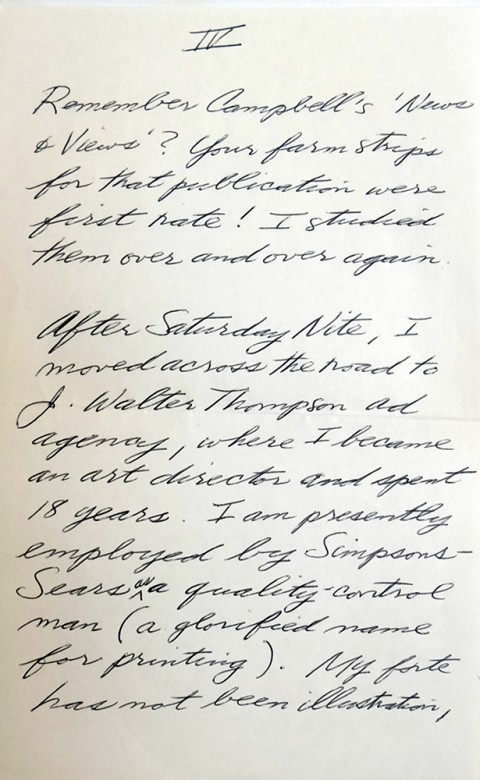 IV
Remember Campbell's 'News
& Views'? Your farm strips
for that publication were
first rate! I studied
them over and over again.
After Saturday Nite, I
moved across the road to
J. Walter Thompson ad
agency, where I became
an art director and spent
18 years. I am presently
employed by Simpsons-
Sears as a quality-control
man (a glorified name
for printing). My forte
has not been illustration,